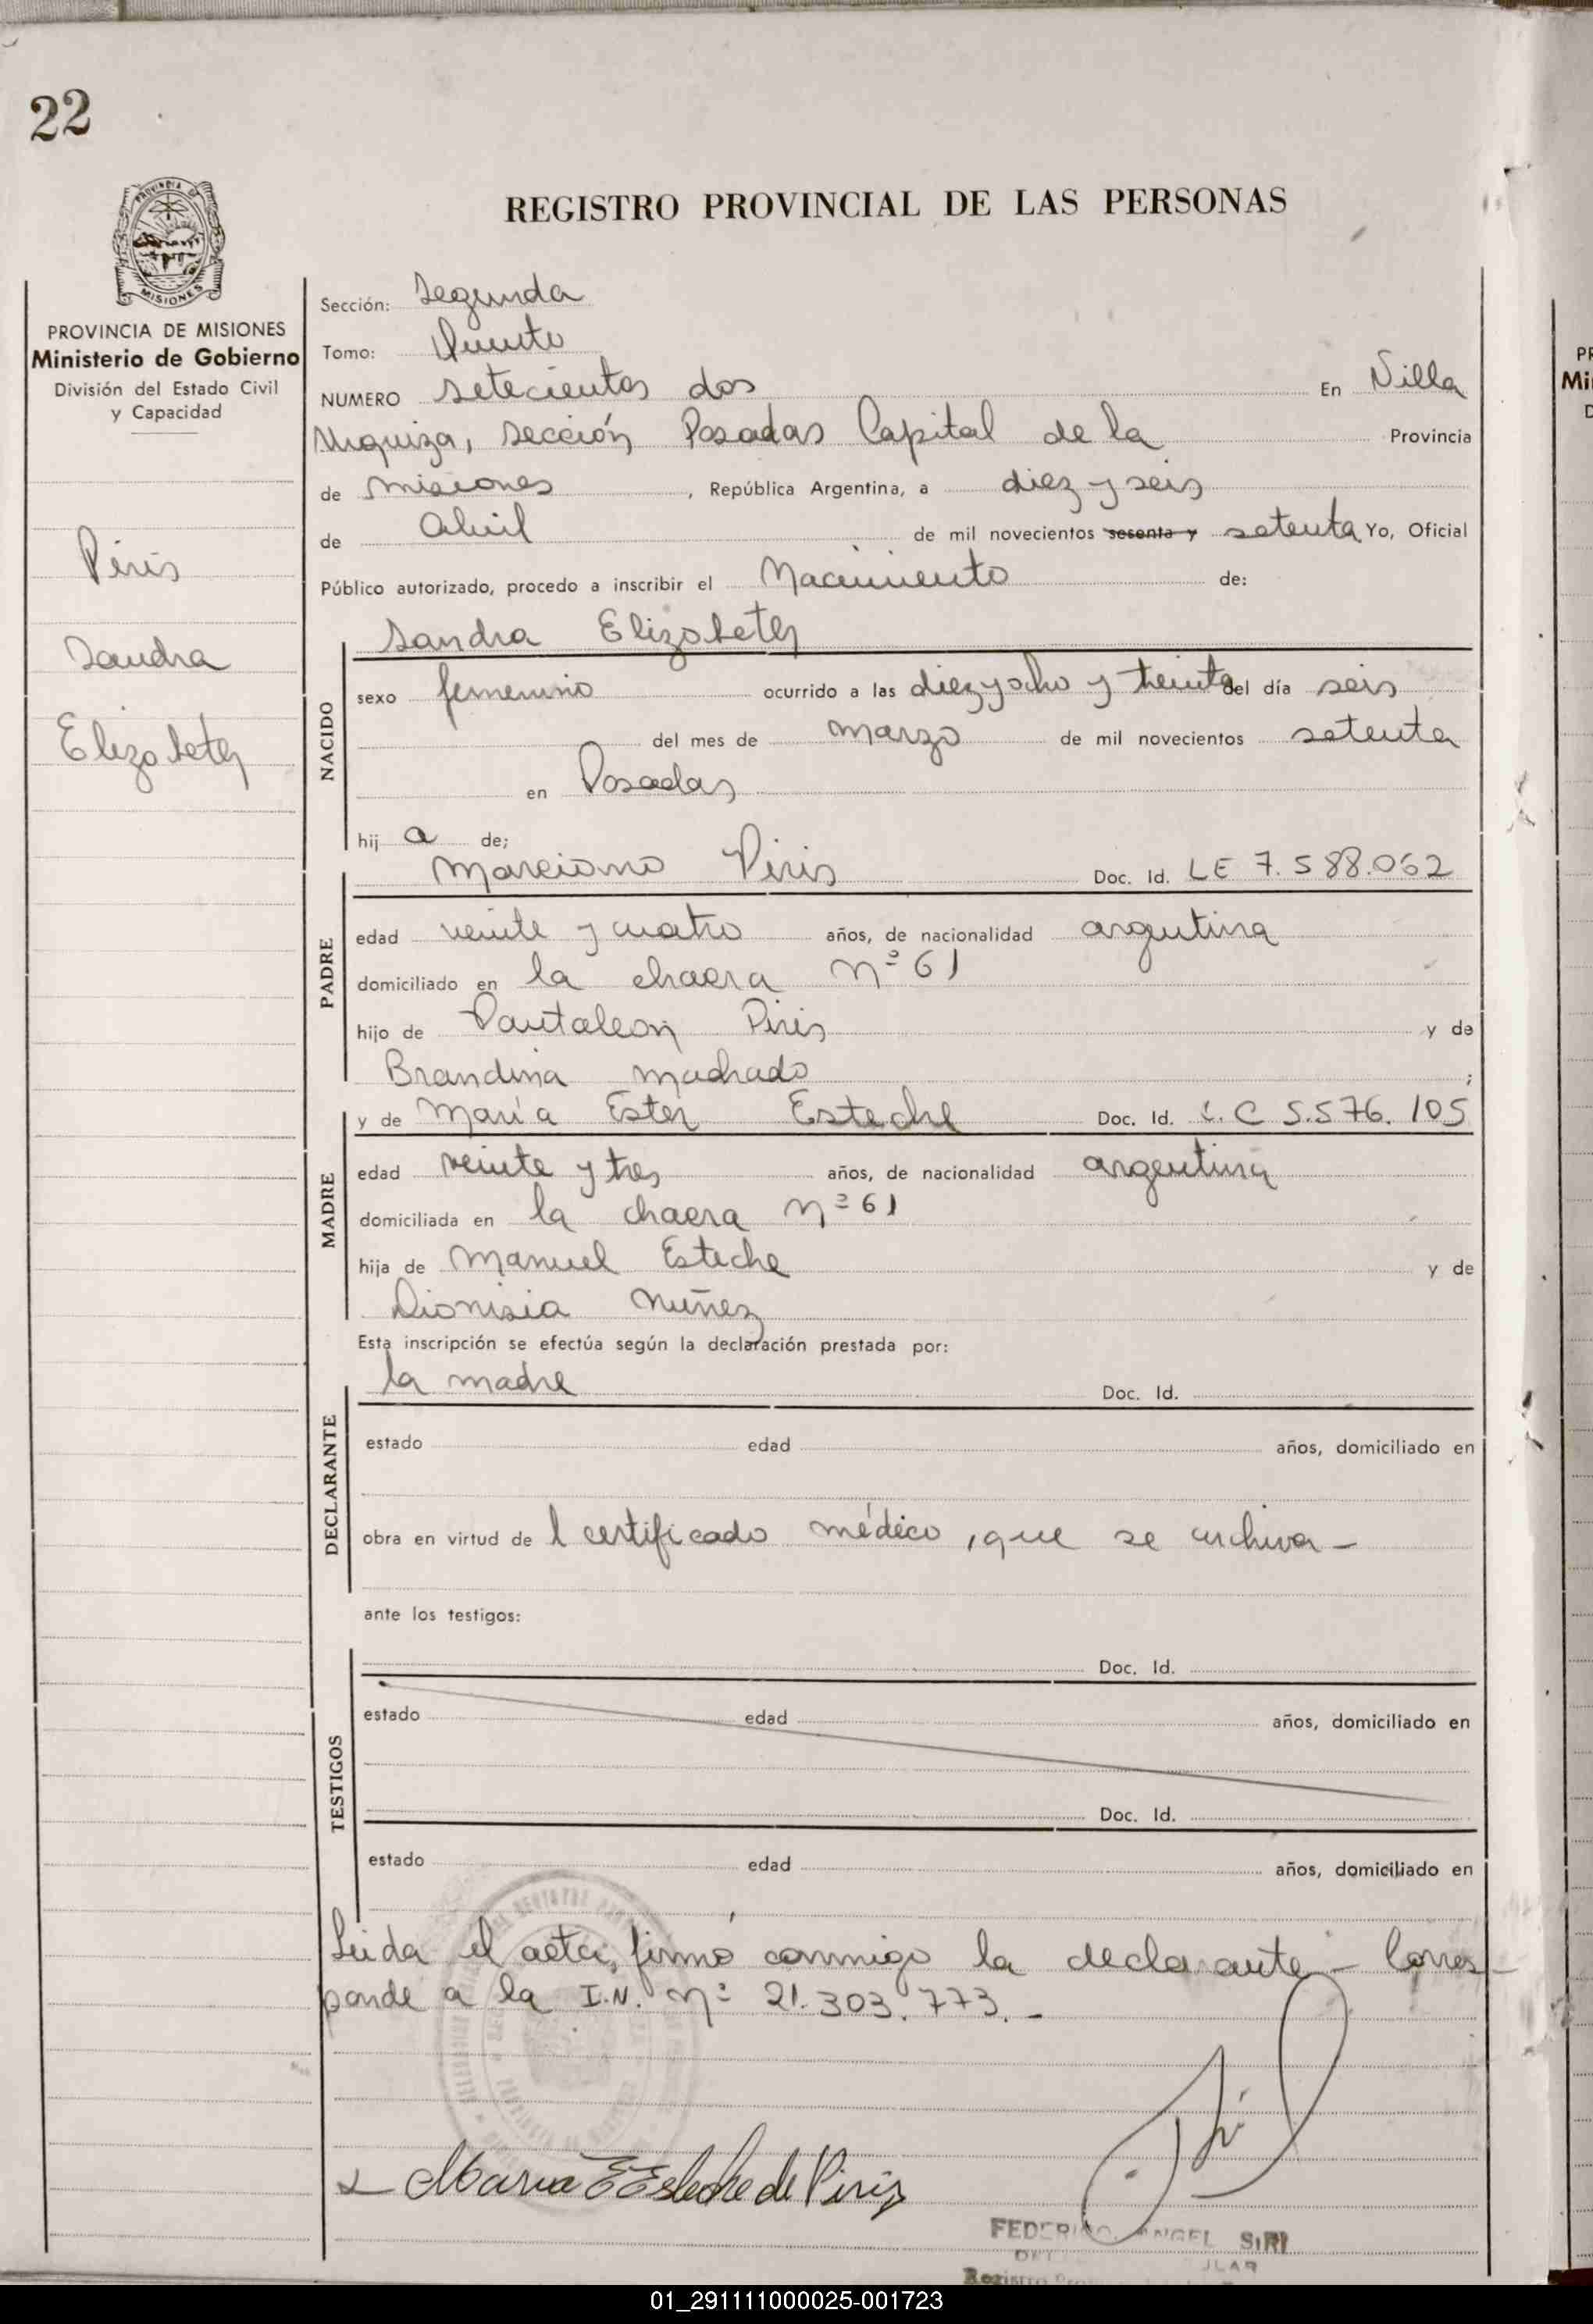 22
PROVINCIA DE
MISIONES
PROVINCIA DE MISIONES
Ministerio de Gobierno
División del Estado Civil
y Capacidad
Piris
Sandra
Elizabeth
REGISTRO PROVINCIAL DE LAS PERSONAS
Sección: Segunda
Tomo: Quinto
NUMERO setecientos dos En Villa
Urquiza, sección Posadas Capital de la Provincia
de Misiones, República Argentina, a diez y seis
de Abril de mil novecientos sesenta y setenta Yo, Oficial
Público autorizado, procedo a inscribir el Nacimiento de:
Sandra Elizabeth
NACIDO
sexo femenino ocurrido a las diez y ocho y treinta del día seis
del mes de marzo de mil novecientos setenta
en Posadas
hij a de;
Marciano Piris Doc. Id. LE 7.588.062
PADRE
edad veinte y cuatro años, de nacionalidad argentina
domiciliado en la chacra nº 61
hijo de Pantaleon Piris y de
Brandina Machado ;
y de María Ester Esteche Doc. Id. L.C 5.576.105
MADRE
edad veinte y tres años, de nacionalidad argentina
domiciliada en la chacra nº 61
hija de Manuel Esteche y de
Dionisia Nuñez
Esta inscripción se efectúa según la declaración prestada por:
la madre Doc. Id.
DECLARANTE
estado edad años, domiciliado en
obra en virtud de l certificado médico, que se archiva -
ante los testigos:
Doc. Id.
TESTIGOS
estado edad años, domiciliado en
Doc. Id.
estado edad años, domiciliado en
Leida el acta, firmó conmigo la declarante - Corres-
ponde a la I.N. nº 21.303.773. -
x Maria E Esteche de Piris
FEDERICO ANGEL SIRI
Registro
PR
Mi
D
01_291111000025-001723